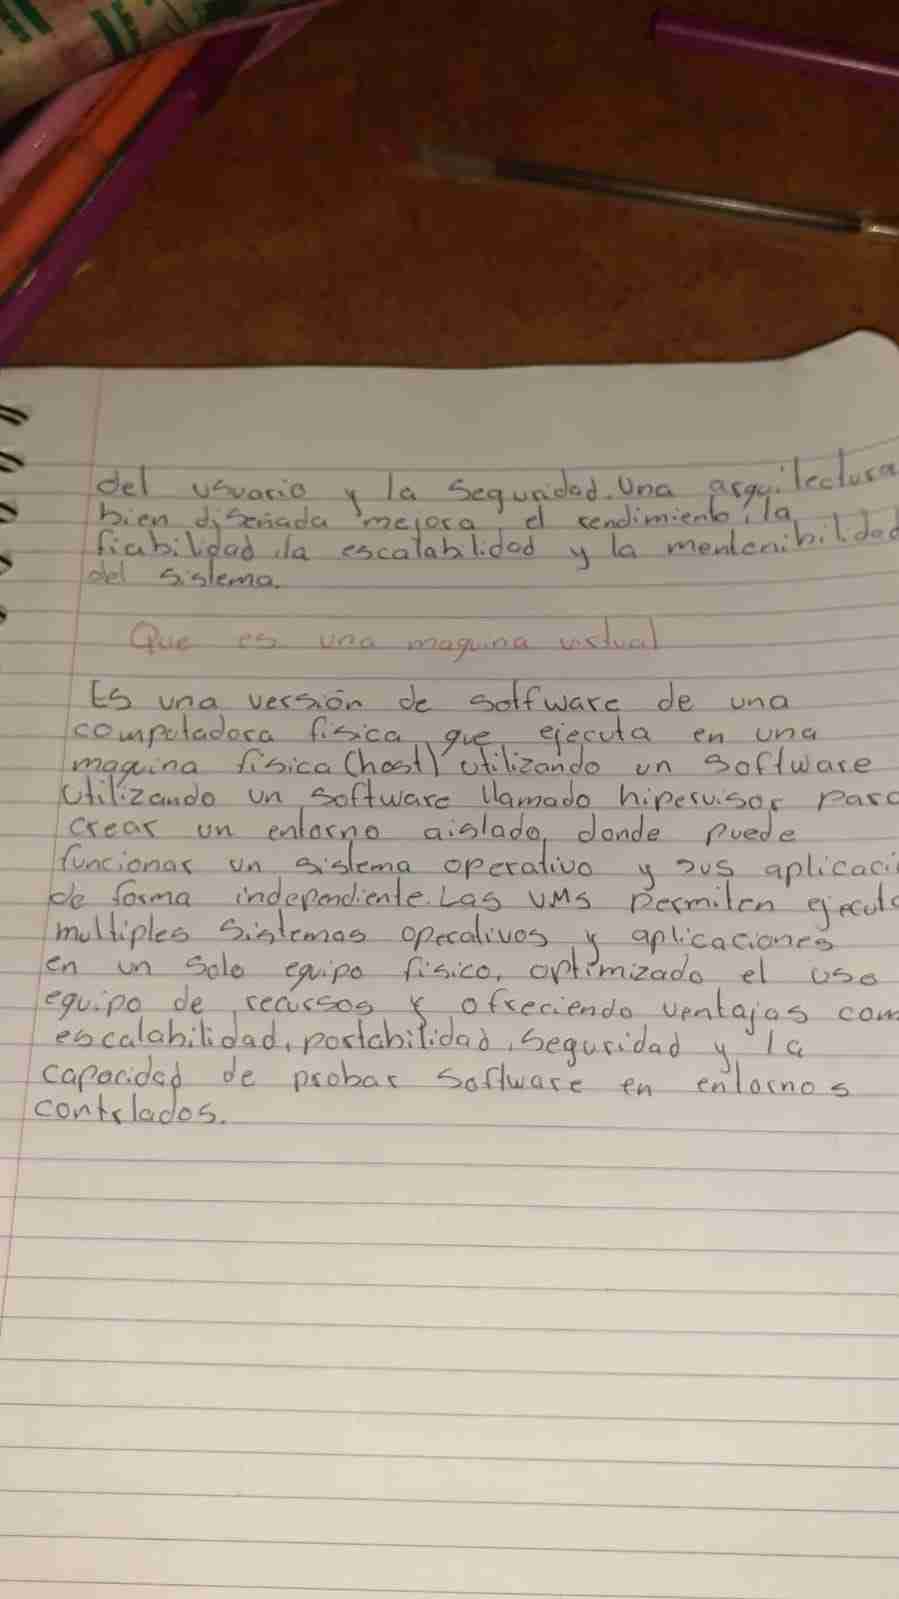 del usuario y la seguridad. Una arquitectura
bien diseñada mejora el rendimiento, la
fiabilidad, la escalabilidad y la mentenibilidad
del sistema.
Que es una maquina virtual
Es una versión de solftware de una
computadora fisica que ejecuta en una
maquina fisica (host) utilizando un software
utilizando un software llamado hipervisor para
crear un entorno aislado donde puede
funcionar un sistema operativo y sus aplicaci
de forma independiente. Las VMS permiten ejecuta
multiples sistemas operativos y aplicaciones
en un solo equipo fisico, optimizado el uso
equipo de recursos y ofreciendo ventajas com
escalabilidad, portabilidad, seguridad y la
capacidad de probar software en entornos
contrlados.